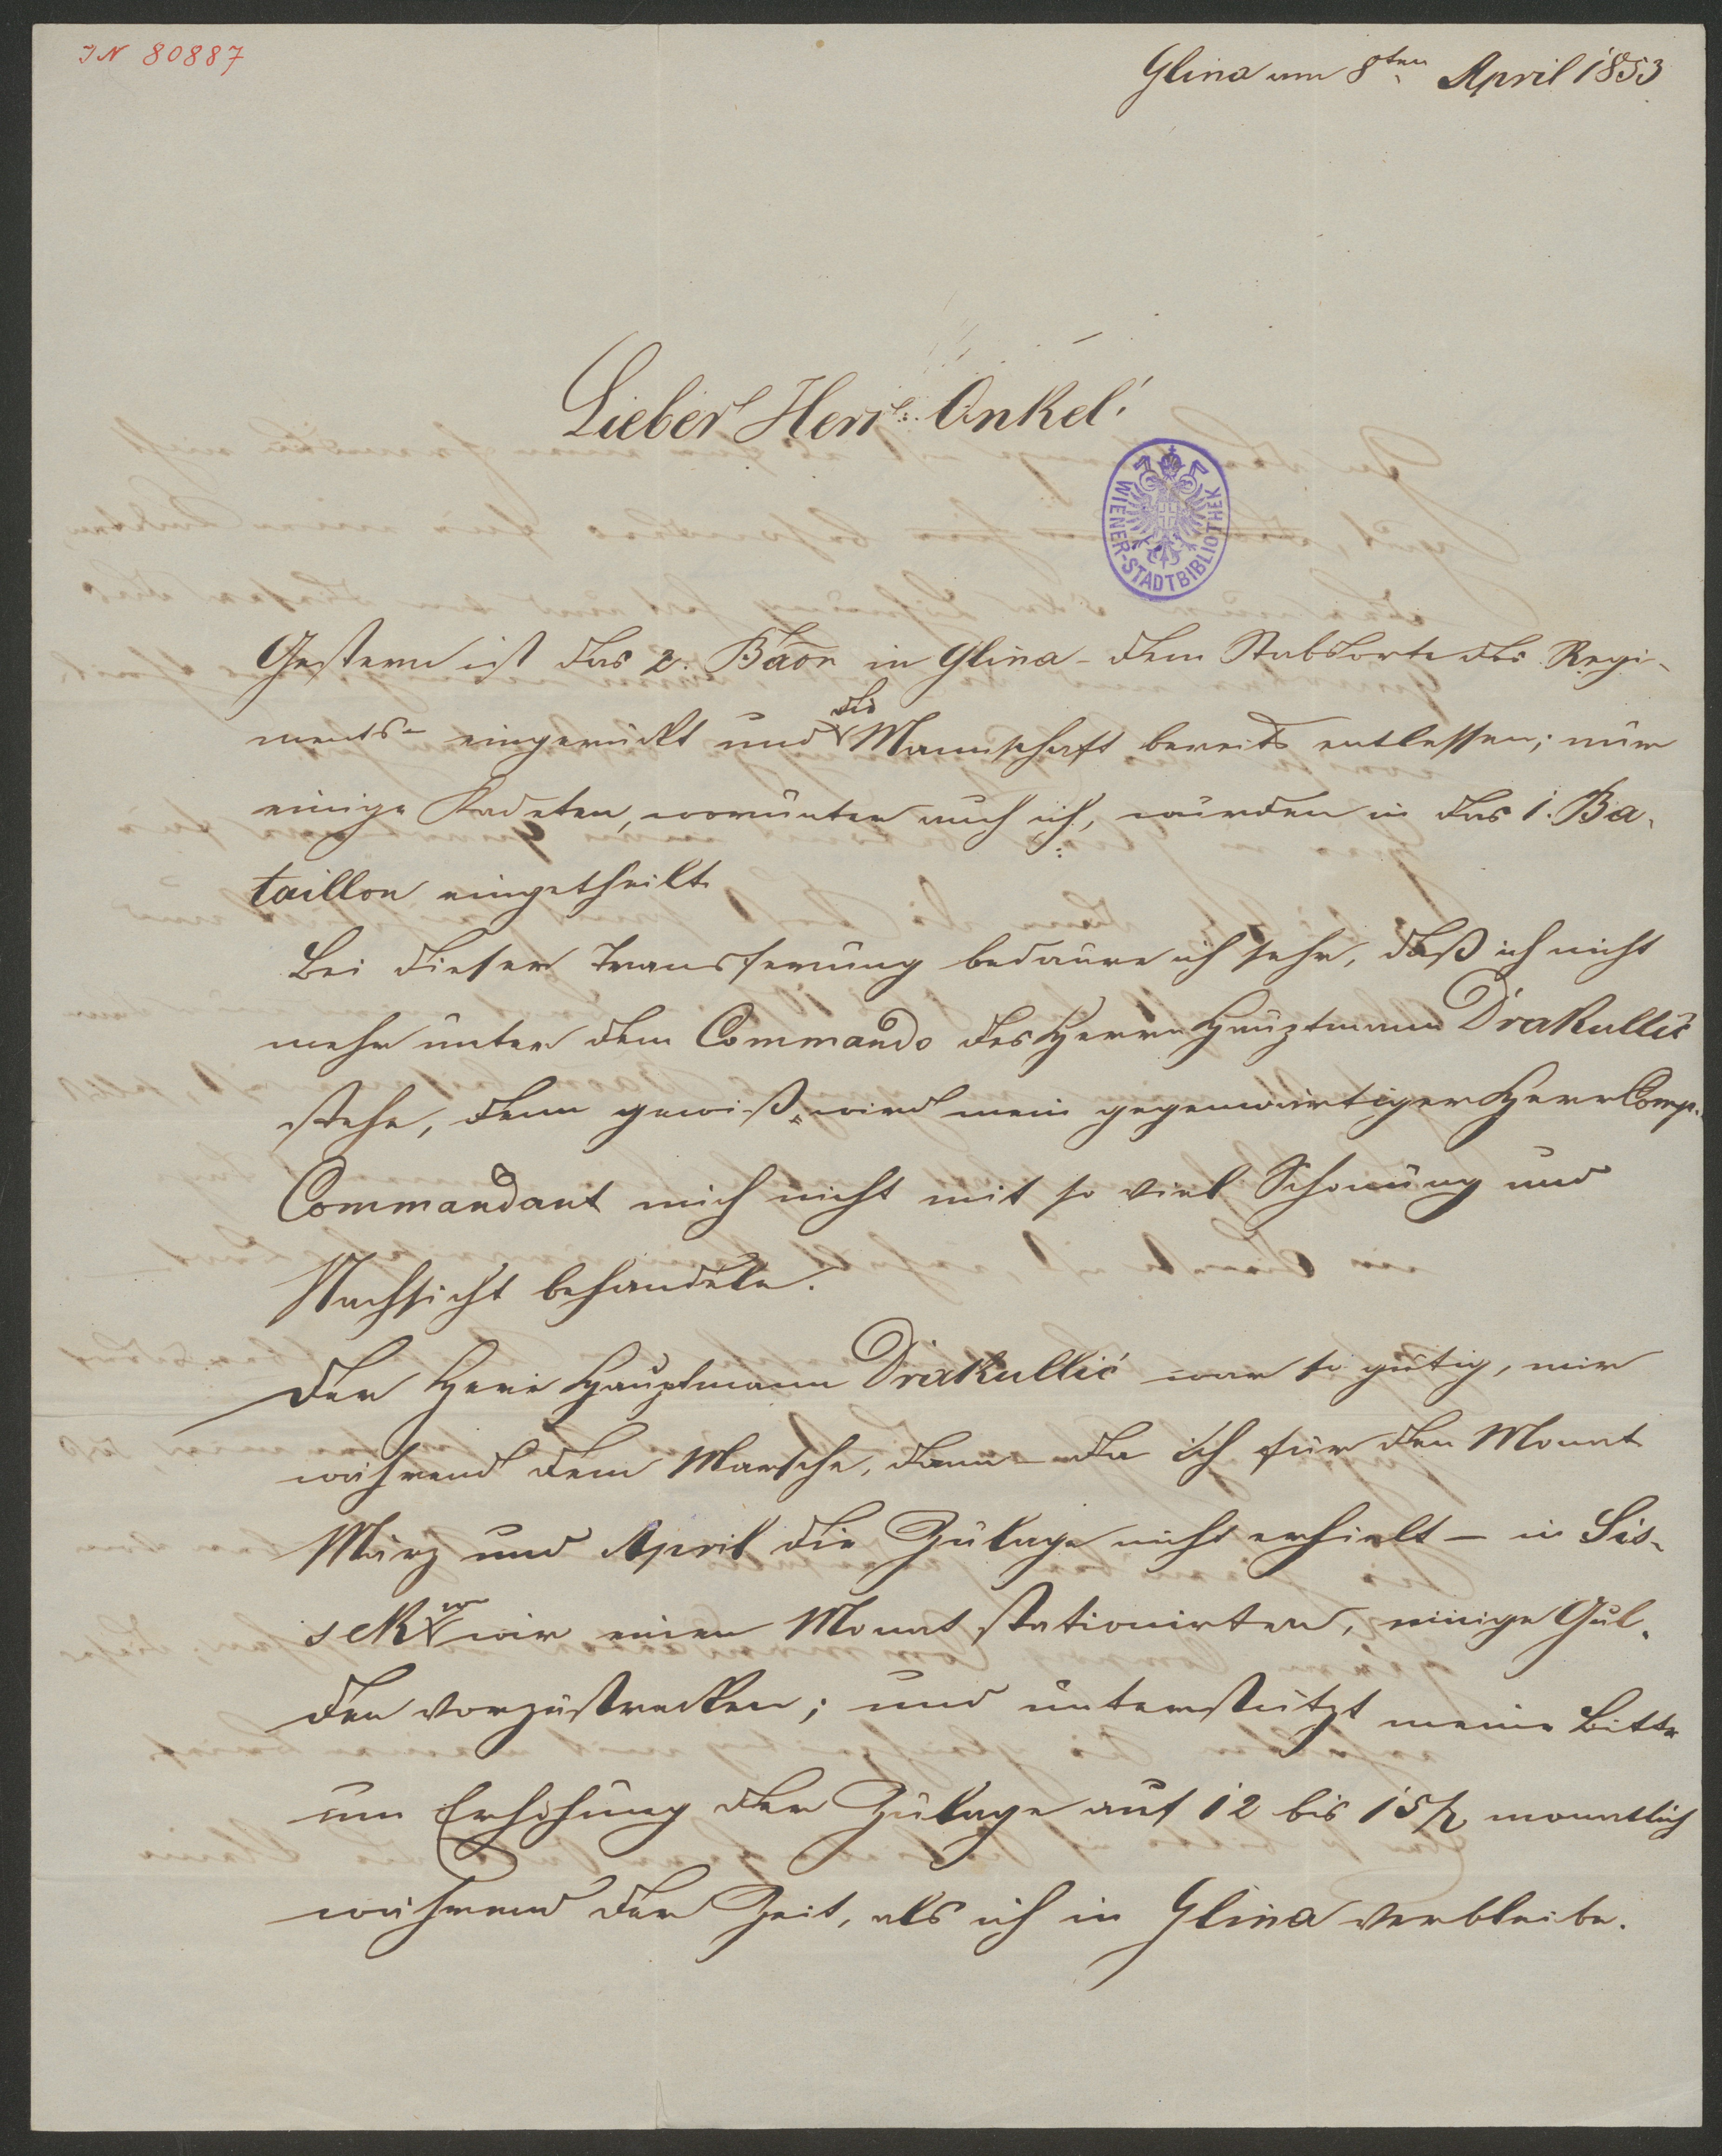 IN 80887
Glina am 8ten April 1853
Lieber Herr Onkel!
WIENER-STADTBIBLIOTHEK
Gestern ist das 2. Baon in Glina - dem Stabsorte des Regi-
ments - eingerückt und die Mannschaft bereits entlassen; nur
einige Kadeten, worunter auch ich, wurden in das 1. Ba-
taillon eingetheilt.
Bei dieser Transferirung bedaure ich sehr, daß ich nicht
mehr unter dem Commando des Herrn Hauptmann Drakullić
stehe, denn gewiß wird mein gegenwärtiger Herr Comp.
Commandant mich nicht mit so viel Schonung und
Nachsicht behandeln.
Der Herr Hauptmann Drakullić war so gütig, mir
während dem Marsche, dann - da ich für den Monat
März und April die Zulage nicht erhielt - in Sis-
sek wo wir einen Monat stationirten, einige Gul-
den vorzustrecken; und unterstützt meine Bitte
um Erhöhung der Zulage auf 12 bis 15 f monatlich
während der Zeit, als ich in Glina verbleibe.